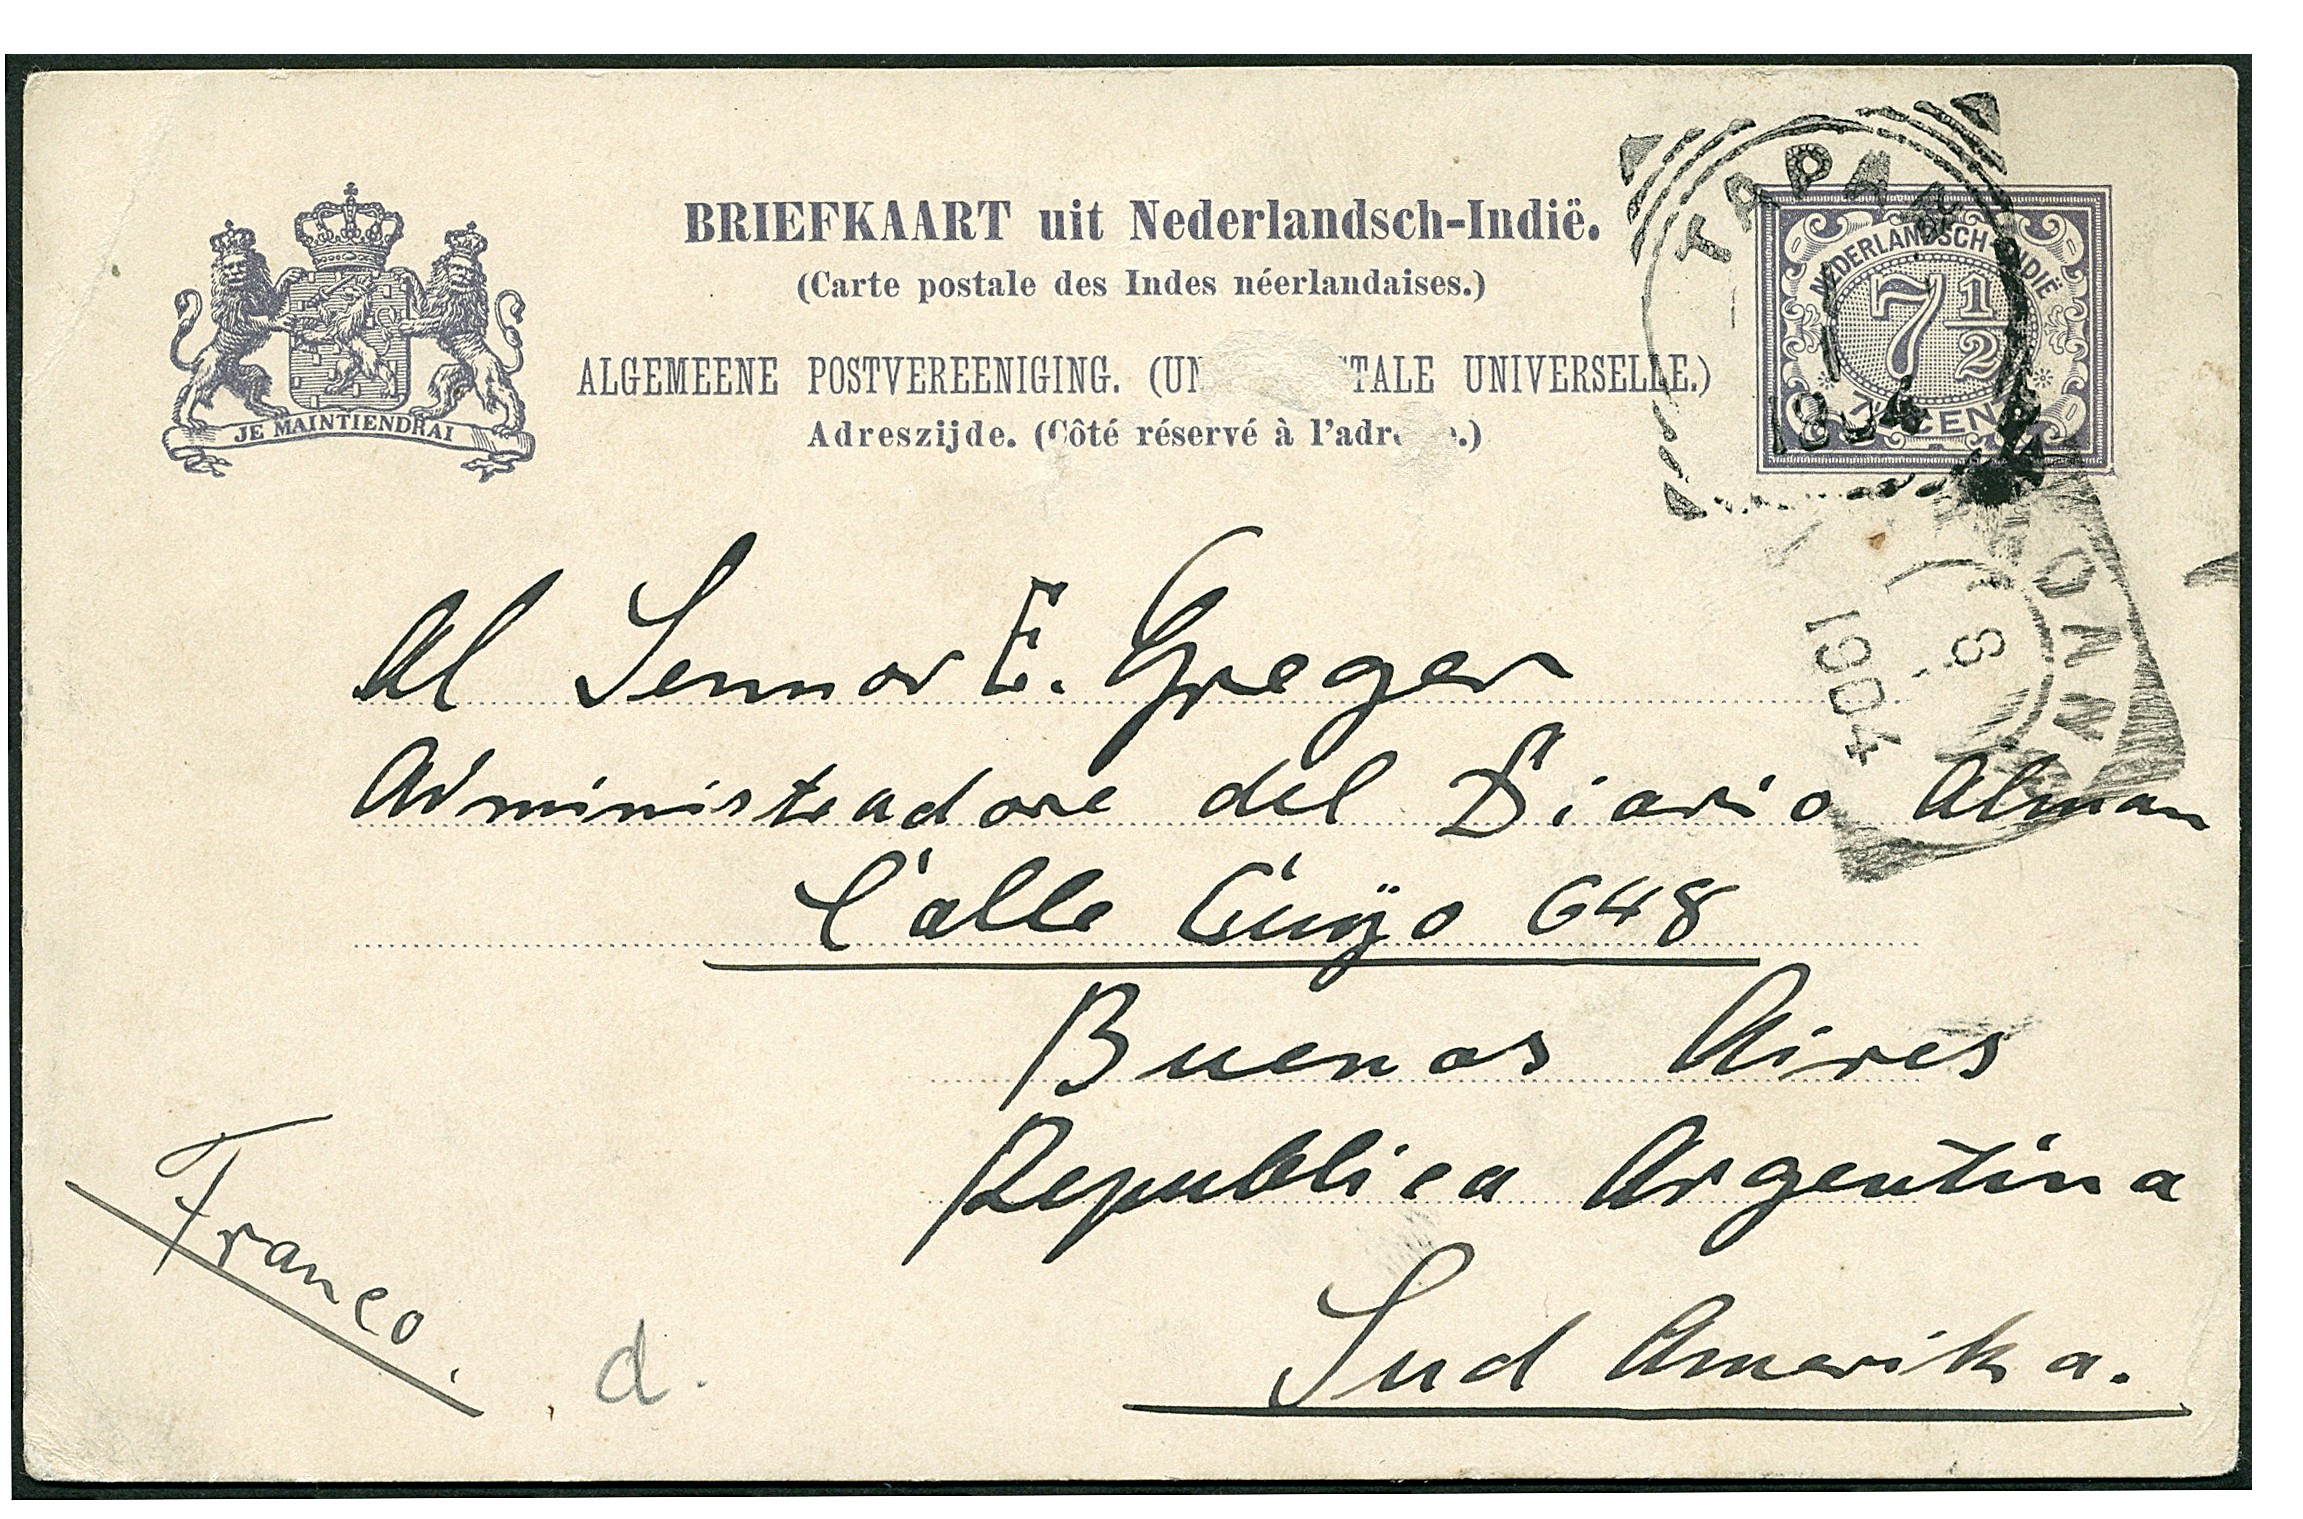 BRIEFKAART uit Nederlandsch-Indië.
(Carte postale des Indes néerlandaises.)
ALGEMEENE POSTVEREENIGING. (UN TALE UNIVERSELLE.)
Adreszijde. (Côté réservé à l'adr .)
JE MAINTIENDRAI
NEDERLANDSCH-INDIË
7 1/2
CENT
1904
Al Sennor E. Greger
Administradore del Diario Alman
Calle Cuÿo 648
Buenos Aires
Republica Argentina
Sud Amerika.
Franco.
d.